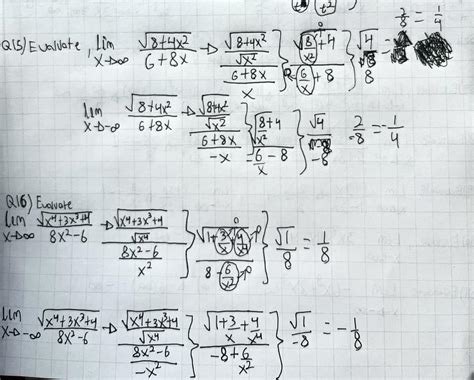 Q15) Evaluate, lim x→∞ √(8+4x²) / (6+8x) → (√(8+4x²)/√x²) / ((6+8x)/x) } √(8/x²+4) / (6/x+8) } √4 / 8 = 2/8 = 1/4
lim x→-∞ √(8+4x²) / (6+8x) → (√(8+4x²)/√x²) / ((6+8x)/-x) } √(8+4/x²) / (-6/x - 8) } √4 / -8 2/-8 = -1/4
Q16) Evaluate
lim x→∞ √(x⁴+3x³+4) / (8x²-6) → (√(x⁴+3x³+4)/√x⁴) / ((8x²-6)/x²) } √(1+3/x+4/x⁴) / (8-6/x²) } √1 / 8 = 1/8
lim x→-∞ √(x⁴+3x³+4) / (8x²-6) → (√(x⁴+3x³+4)/√x⁴) / ((8x²-6)/-x²) } √(1+3/x+4/x⁴) / (-8+6/x²) } √1 / -8 = -1/8